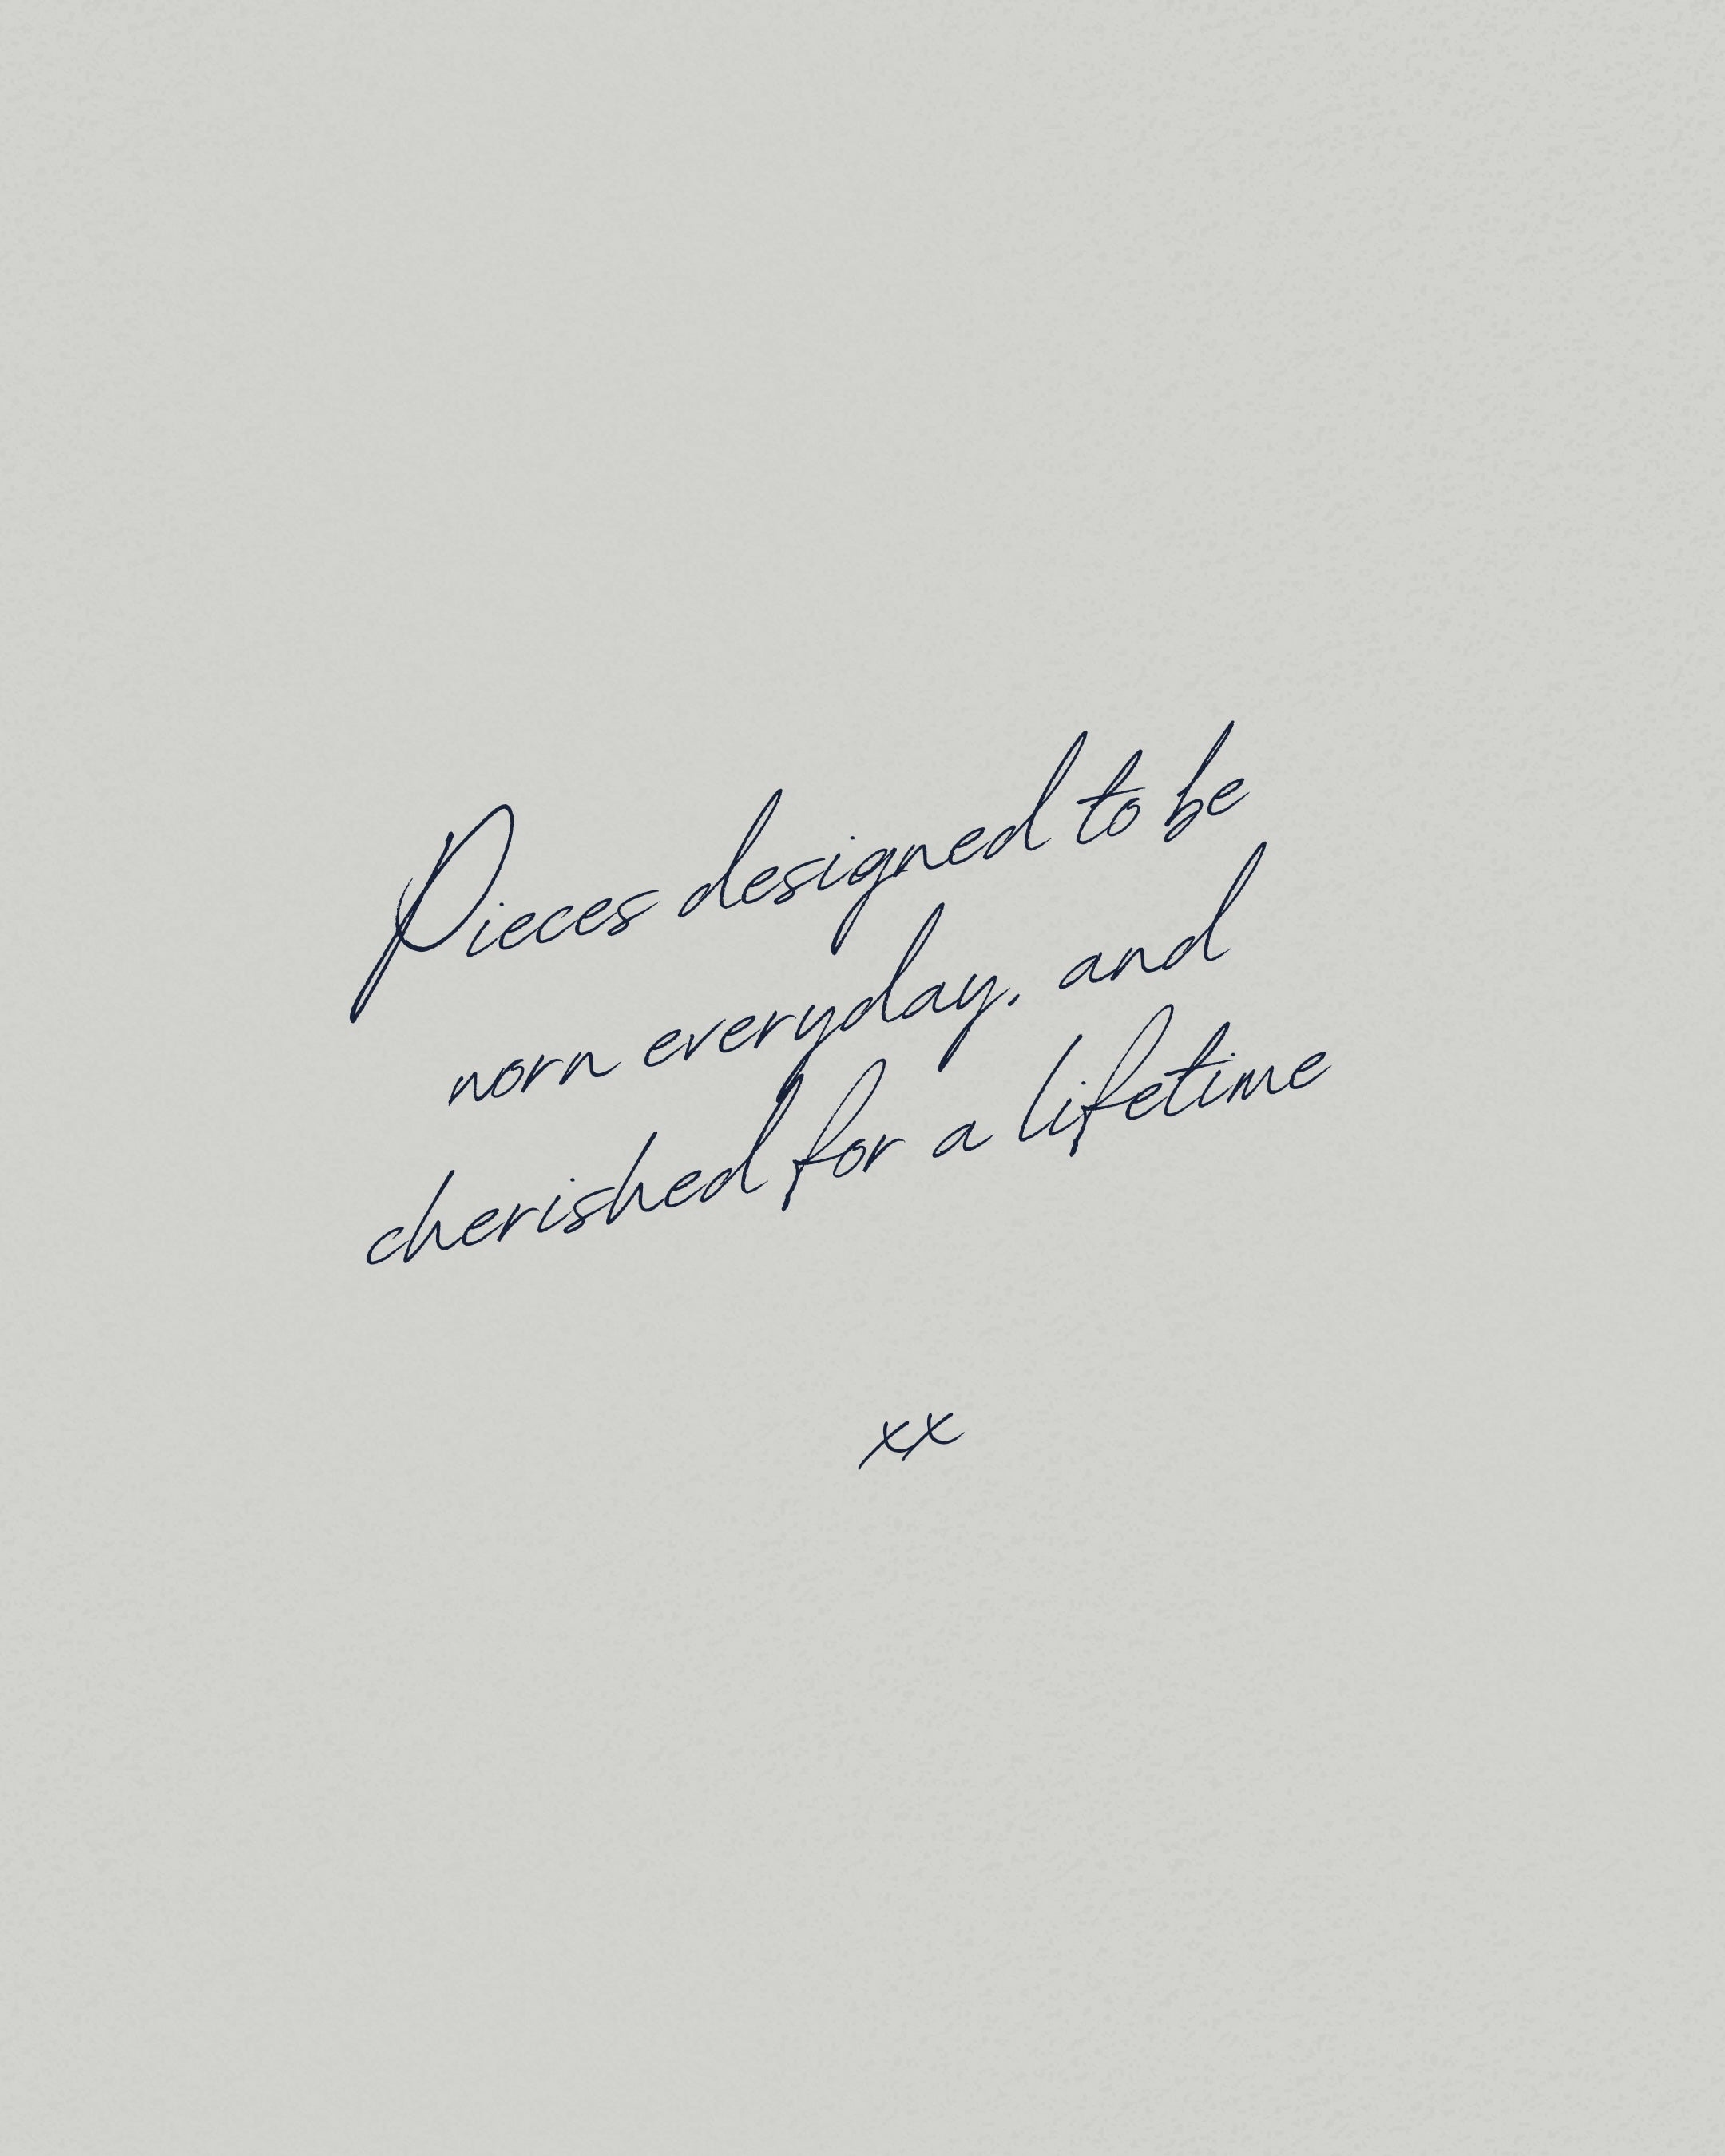 Pieces designed to be
worn everyday, and
cherished for a lifetime
xx